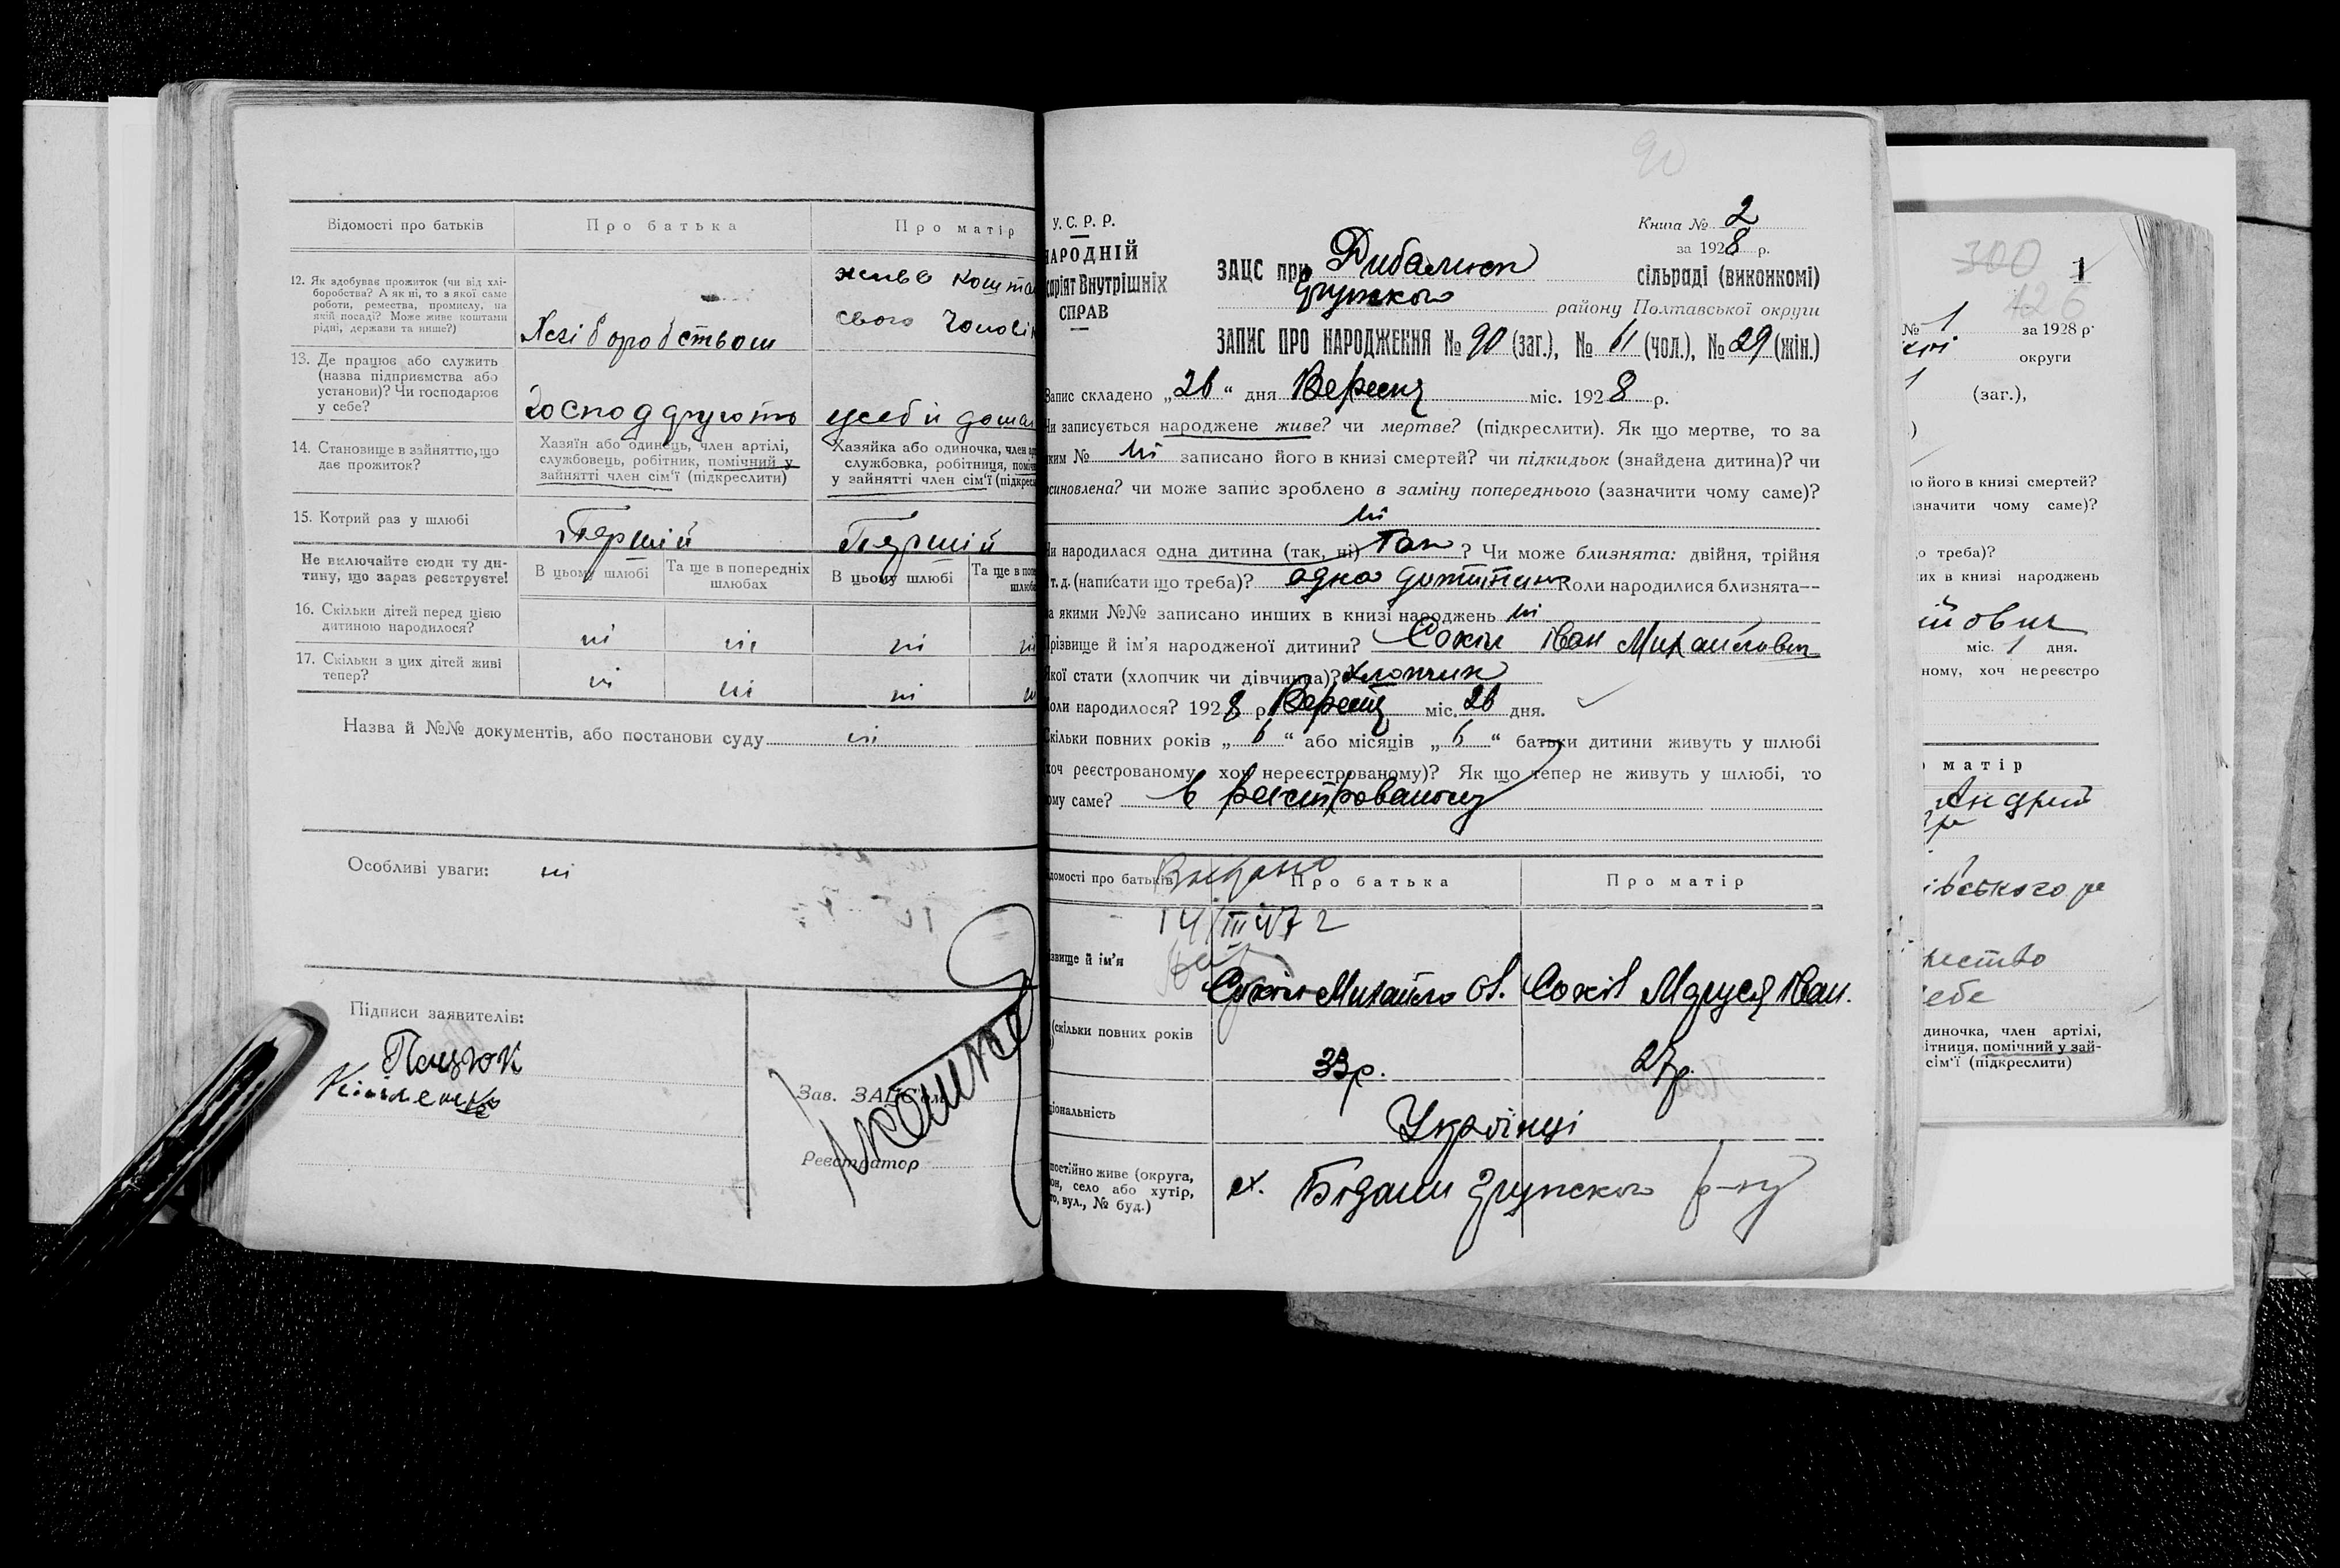 Відомості про батьків
Про батька
Про матір
12. Як здобуває прожиток (чи від хлі-
боробства? А як ні, то з якої саме
роботи, ремества, промислу, на
якій посаді? Може живе коштами
рідні, держави та инше?)
Хліборобством
живе кошта
свого чоловік
13. Де працює або служить
(назва підприємства або
установи)? Чи господарює
у себе?
усебя дома
14. Становище в зайняттю, що
дає прожиток?
Хазяїн або одинець, член артілі,
службовець, робітник, помічний у
зайнятті член сім'ї (підкреслити)
Хазяйка або одиночка, член ар
службовка, робітниця, поміч
у зайнятті член сім'ї (підкресл
15. Котрий раз у шлюбі
Першій
Першій
Не включайте сюди ту ди-
тину, що зараз реєструєте!
В цьому шлюбі
Та ще в попередніх
шлюбах
В цьому шлюбі
Та ще в поп
шлюба
16. Скільки дітей перед цією
дитиною народилося?
ні ні ні ні
17. Скільки з цих дітей живі
тепер?
ні ні ні
Назва й №№ документів, або постанови суду ні
Особливі уваги: ні
Підписи заявителів:
Зав. ЗАЦС'ом
Реєстратор
90
У.С.Р.Р.
НАРОДНІЙ
саріят Внутрішніх
СПРАВ
Книга № 2
за 1928 р.
ЗАЦС при сільраді (виконкомі)
району Полтавської округи
ЗАПИС ПРО НАРОДЖЕННЯ № 90 (заг.), № 61 (чол.), № 29 (жін.)
Запис складено „26“ дня Вересня міс. 1928 р.
Чи записується народжене живе? чи мертве? (підкреслити). Як що мертве, то за
яким № ні записано його в книзі смертей? чи підкидьок (знайдена дитина)? чи
синовлена? чи може запис зроблено в заміну попереднього (зазначити чому саме)?
ні
Чи народилася одна дитина (так, ні) Так? Чи може близнята: двійня, трійня
т. д. (написати що треба)? одна дитина Коли народилися близнята—
за якими №№ записано инших в книзі народжень ні
Прізвище й ім'я народженої дитини? Сокіл Іван Михайлович
Якої стати (хлопчик чи дівчинка)? хлопчик
Коли народилося? 1928 р. Вересня міс. 26 дня.
Скільки повних років „6“ або місяців „6“ батьки дитини живуть у шлюбі
хоч реєстрованому, хоч нереєстрованому)? Як що тепер не живуть у шлюбі, то
чому саме? в реєстрованому
Відомості про батьків
Про батька
Про матір
14/III 47 г
звище й ім'я
Сокіл Михайло Ол.
Сокіл Маруся Іван.
(скільки повних років
33р.
27р.
ціональність
Українці
постійно живе (округа,
он, село або хутір,
то, вул., № буд.)
1
300
126
№ 1 за 1928 р.
округи
(заг.),
ю його в книзі смертей?
значити чому саме)?
о треба)?
их в книзі народжень
йович
міс. 1 дня.
ному, хоч нереєстро
матір
івського р
себе
диночка, член артілі,
ітниця, помічний у зай-
сім'ї (підкреслити)